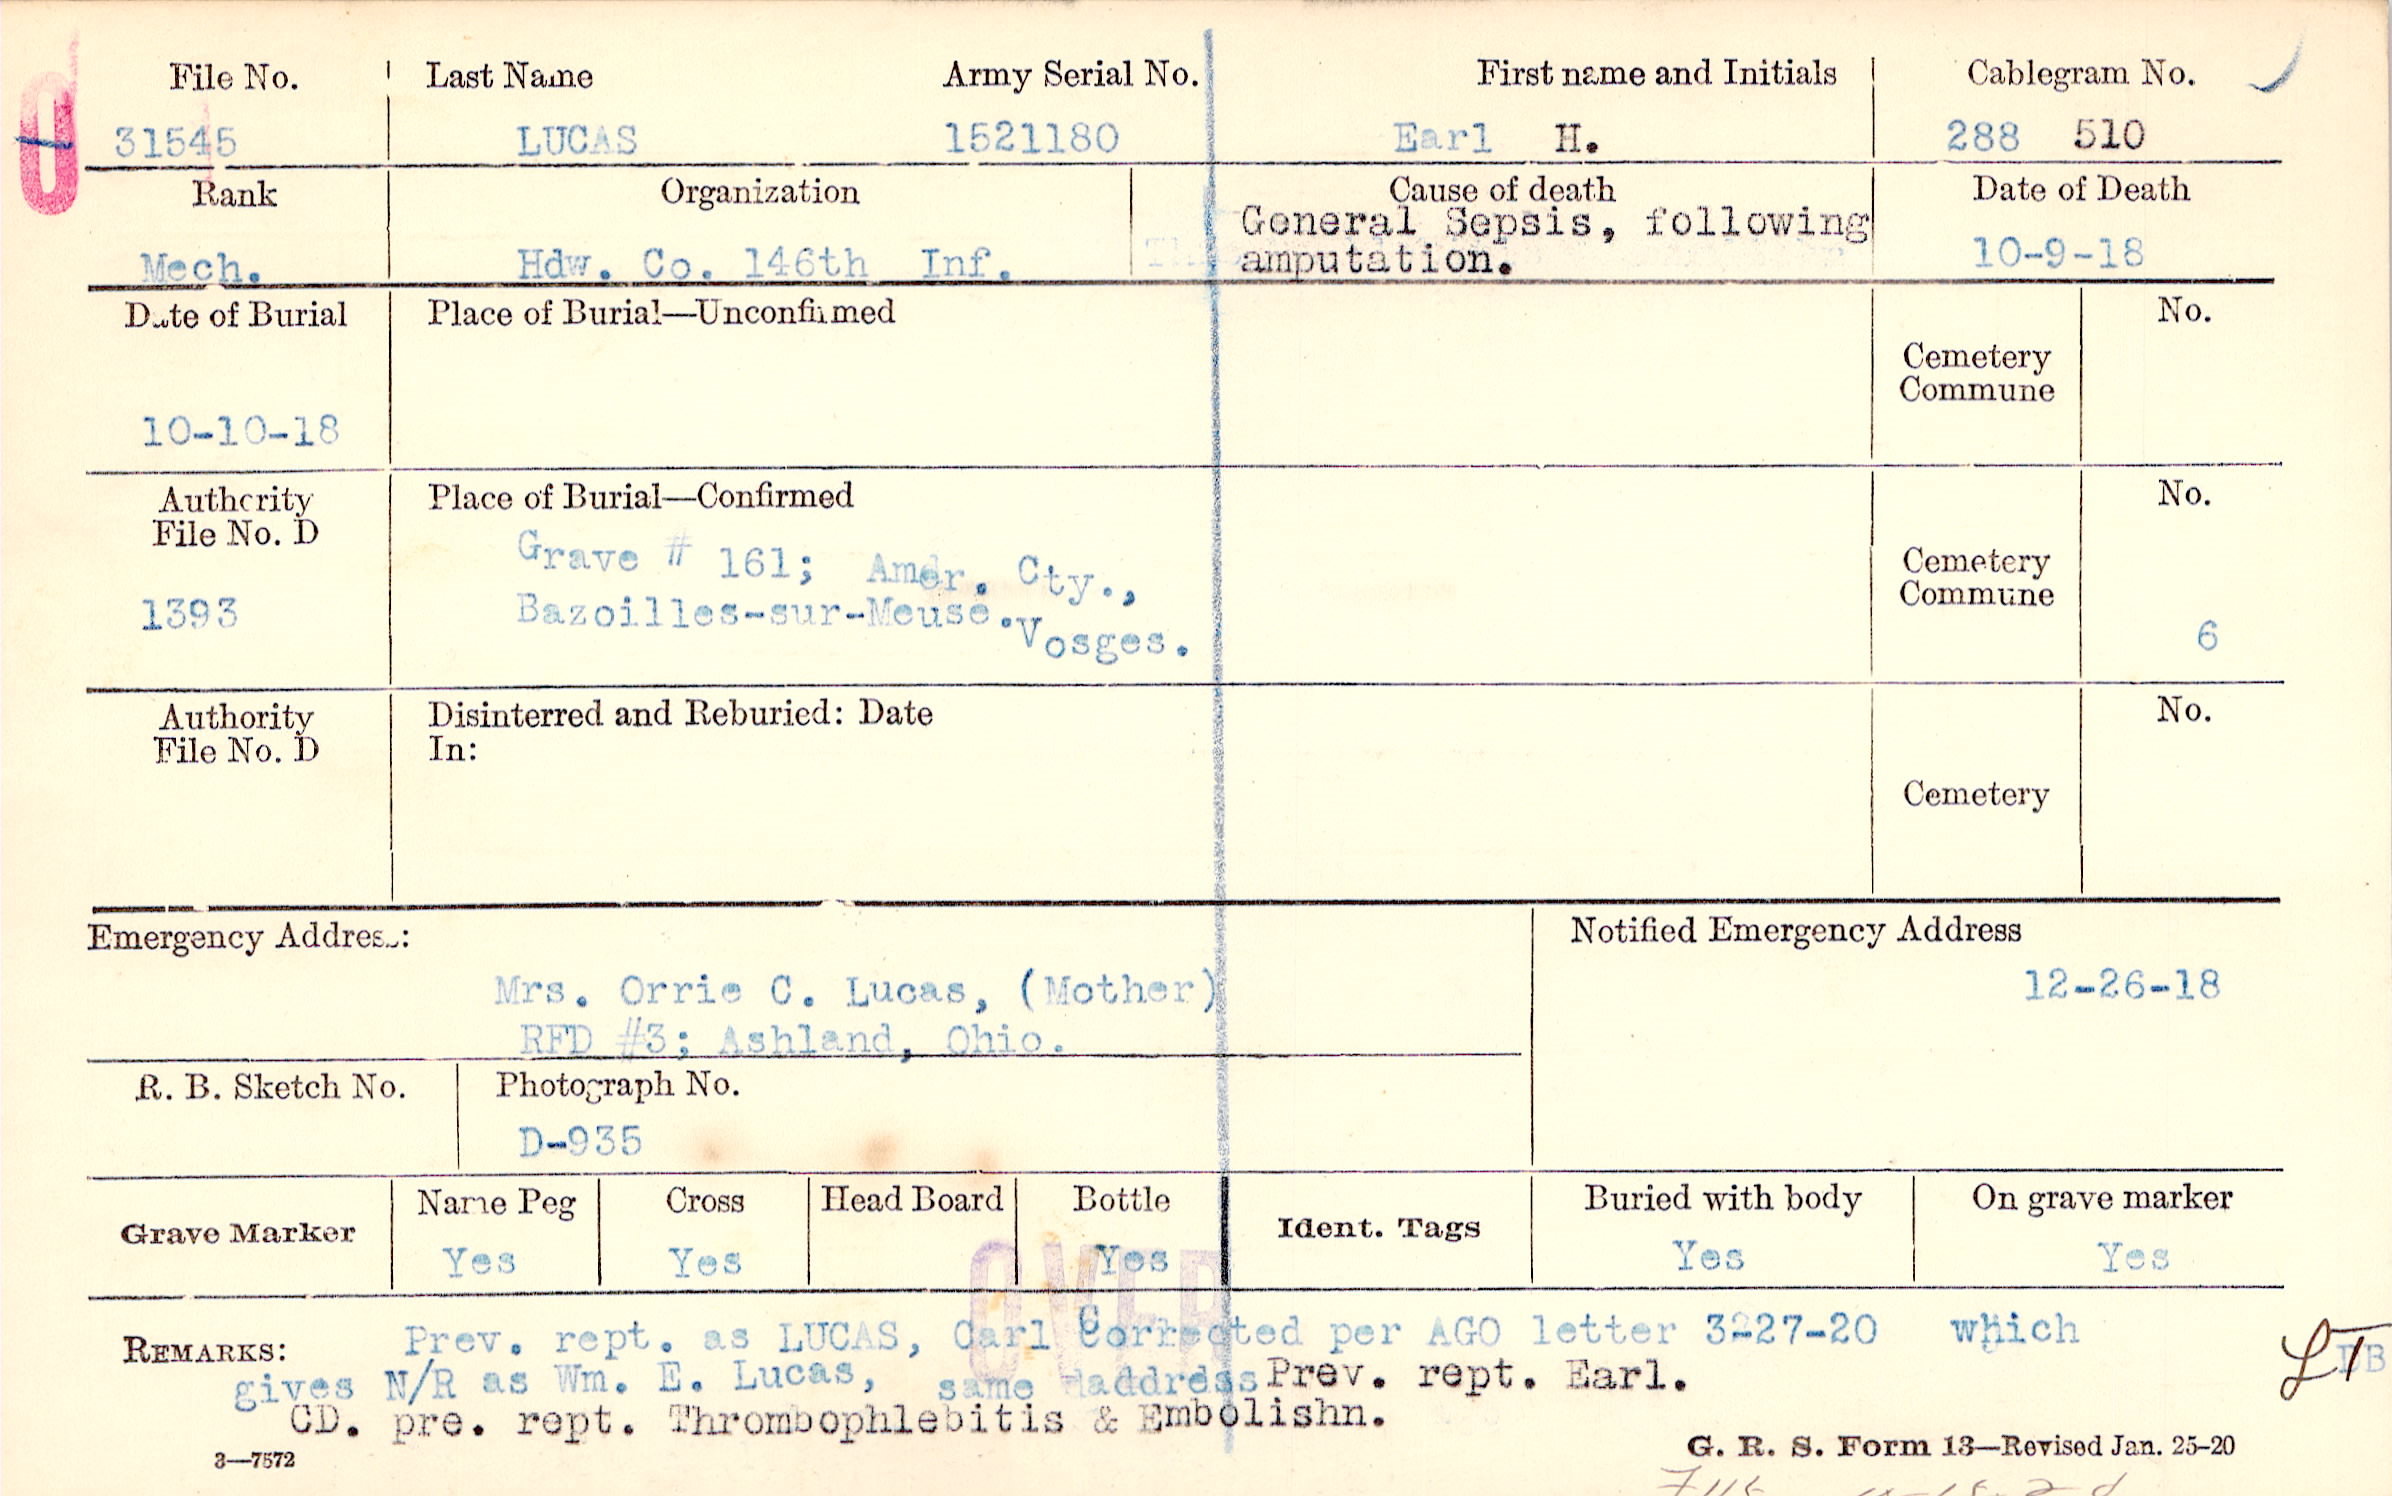 File No. Last Name Army Serial No. First name and Initials Cablegram No.
31545 LUCAS 1521180 Earl H. 288 510
Rank Organization Cause of death Date of Death
Mech. Hdw. Co. 146th Inf. General Sepsis, following 10-9-18
amputation.
Date of Burial Place of Burial—Unconfirmed Cemetery No.
Commune
10-10-18
Authority Place of Burial—Confirmed No.
File No. D Grave # 161; Amer. Cty., Cemetery
1393 Bazoilles-sur-Meuse. Vosges. Commune 6
Authority Disinterred and Reburied: Date No.
File No. D In:
Cemetery
Emergency Address: Notified Emergency Address
Mrs. Orrie C. Lucas, (Mother) 12-26-18
RFD #3; Ashland, Ohio.
R. B. Sketch No. Photograph No.
D-935
Grave Marker Name Peg Cross Head Board Bottle Ident. Tags Buried with body On grave marker
Yes Yes Yes Yes Yes
OVER
REMARKS: Prev. rept. as LUCAS, Carl Corrected per AGO letter 3-27-20 which
gives N/R as Wm. E. Lucas, same address Prev. rept. Earl.
CD. pre. rept. Thrombophlebitis & Embolishn.
3—7572 G. R. S. Form 13—Revised Jan. 25-20